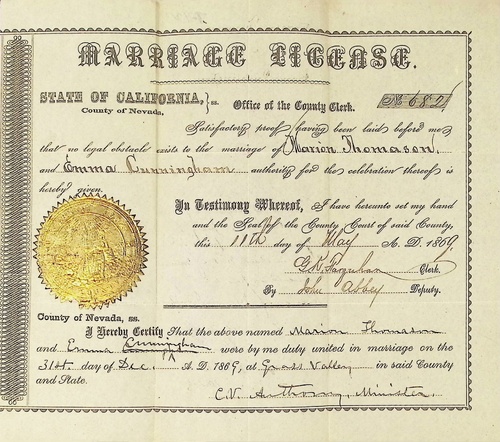 MARRIAGE LICENSE.
STATE OF CALIFORNIA, } ss.
County of Nevada.
Office of the County Clerk.
No 682
Satisfactory proof having been laid before me
that no legal obstacle exists to the marriage of Marion Thomason.
and Emma Cunningham authority for the celebration thereof is
hereby given.
In Testimony Whereof, I have hereunto set my hand
and the Seal of the County Court of said County,
this 11th day of May A. D. 1869
Clerk.
By John Abbey Deputy.
County of Nevada, ss.
I Hereby Certify That the above named Marion Thomason
and Emma Cunningham were by me duly united in marriage on the
31st day of Dec. A. D. 1869, at Grass Valley in said County
and State.
C. V. Anthony, Minister.